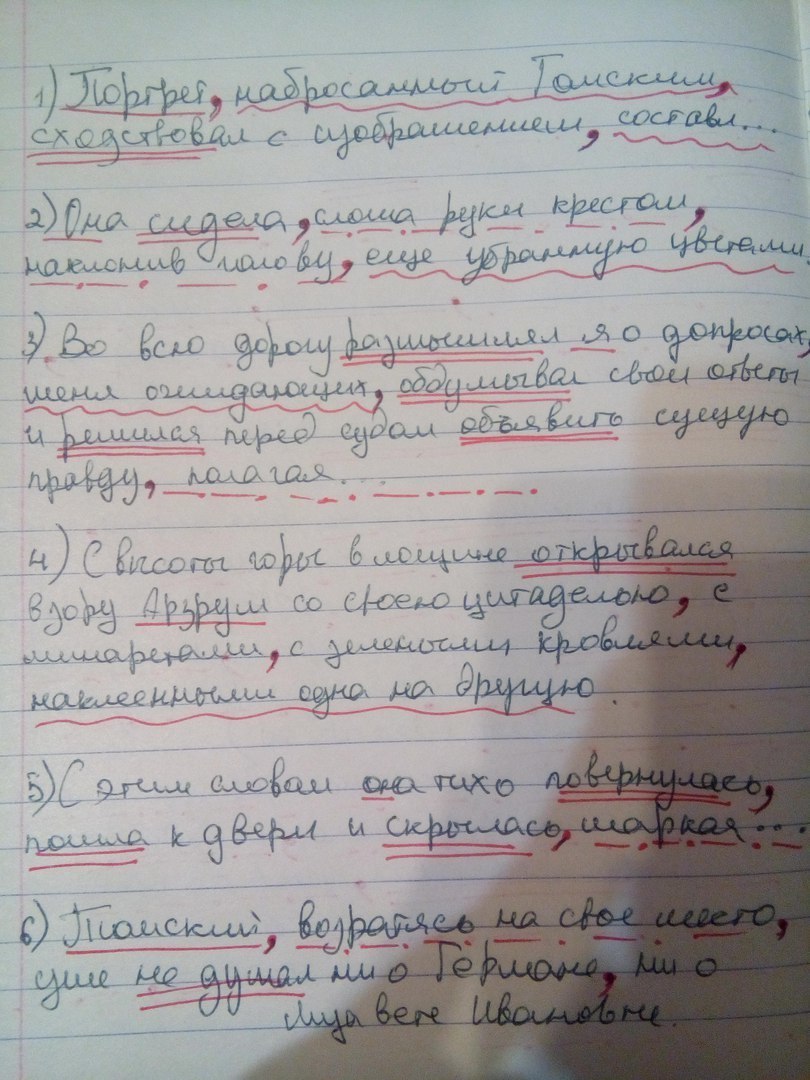 1) Портрет, набросанный Томским,
сходствовал с изображением, составл...
2) Она сидела, сложа руки крестом,
наклонив голову, еще убранную цветами.
3) Во всю дорогу размышлял я о допросах,
меня ожидающих, обдумывал свои ответы
и решился перед судом объявить сущую
правду, полагая...
4) С высоты горы в лощине открывался
взору Арзрум со своею цитаделью, с
минаретами, с зелеными кровлями,
наклеенными одна на другую.
5) С этим словам она тихо повернулась,
пошла к двери и скрылась, шаркая...
6) Томский, возратясь на свое место,
уже не думал ни о Германе, ни о
Лизавете Ивановне.